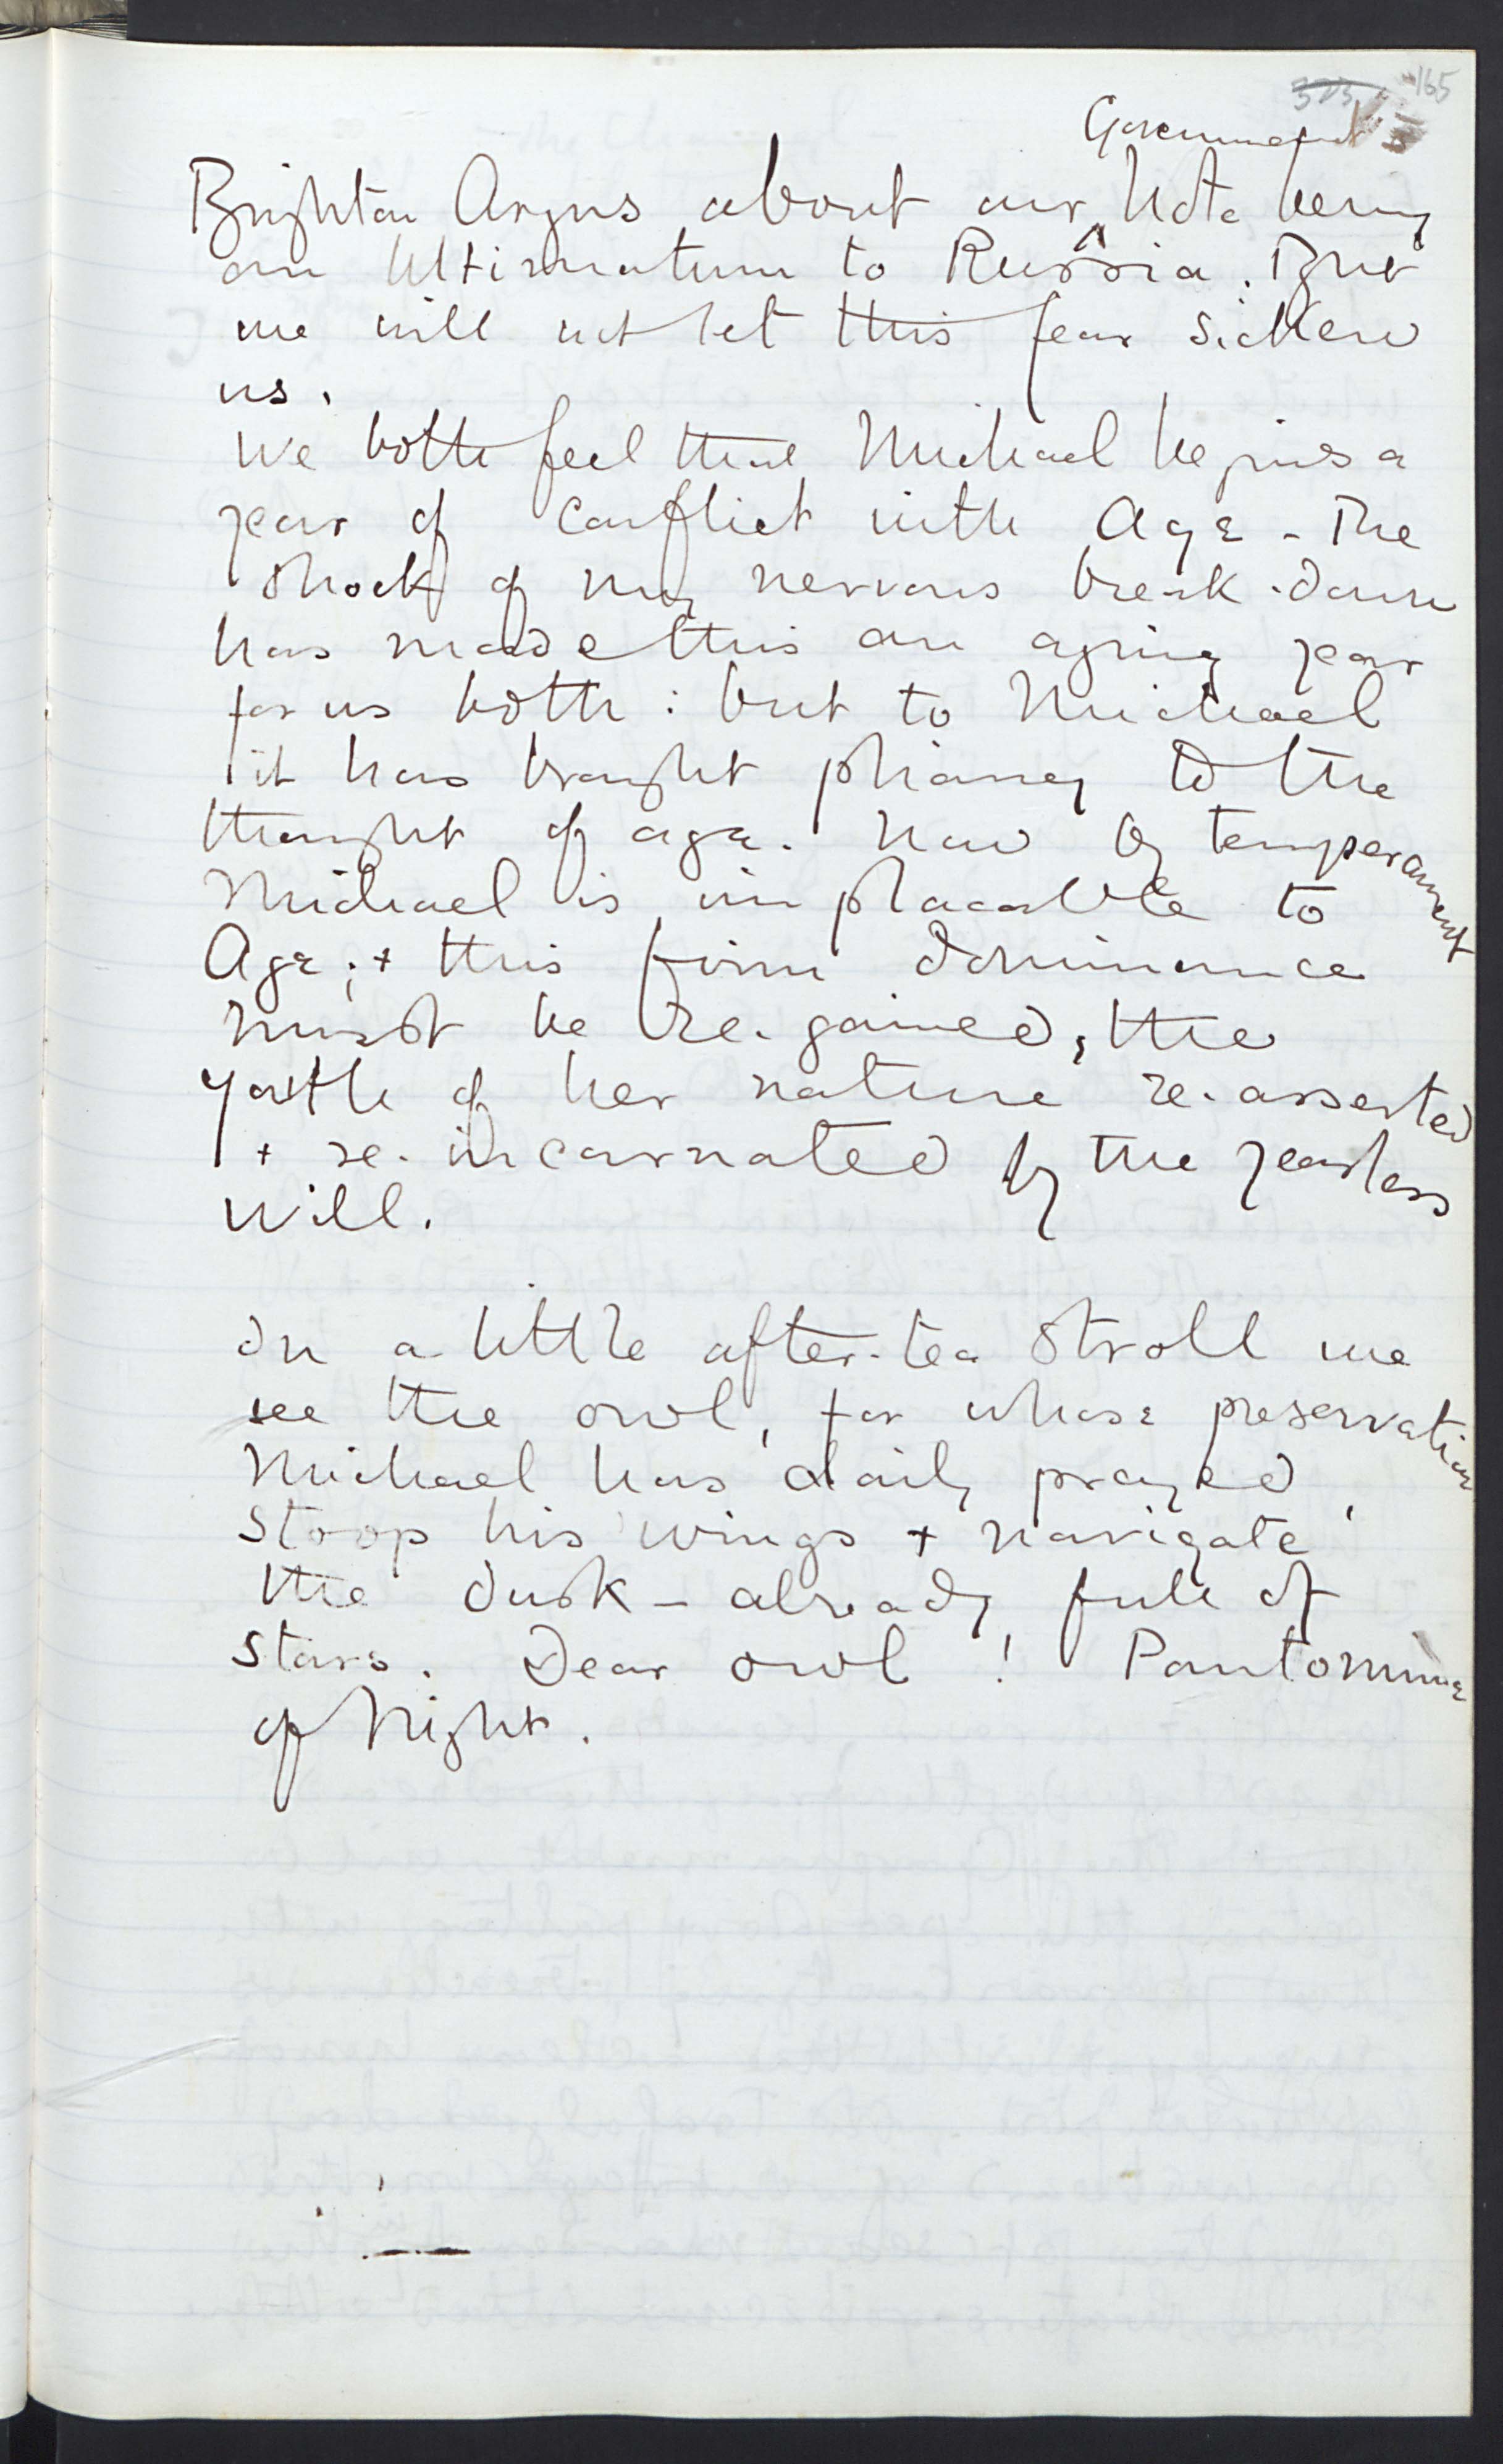 373 165
Government
Brighton Argus about our ^ Note being
an Ultimatum to Russia. But
we will not let this fear sicken
us.
We both feel that Michael begins a
year of conflict with Age - The
shock of my nervous break-down
has made this an aging year
for us both: but to Michael
it has brought to the
thought of age. Now by temperament
Michael is implacable to
Age; + this firm dominance
must be re-gained, the
youth of her nature re-asserted
+ re-incarnated by the yearless
will.
In a little after-tea stroll we
see the owl, for whose preservation
Michael has daily prayed,
stoop his wings + navigate
the dusk - already full of
stars. Dear owl! Pantomime
of Night.